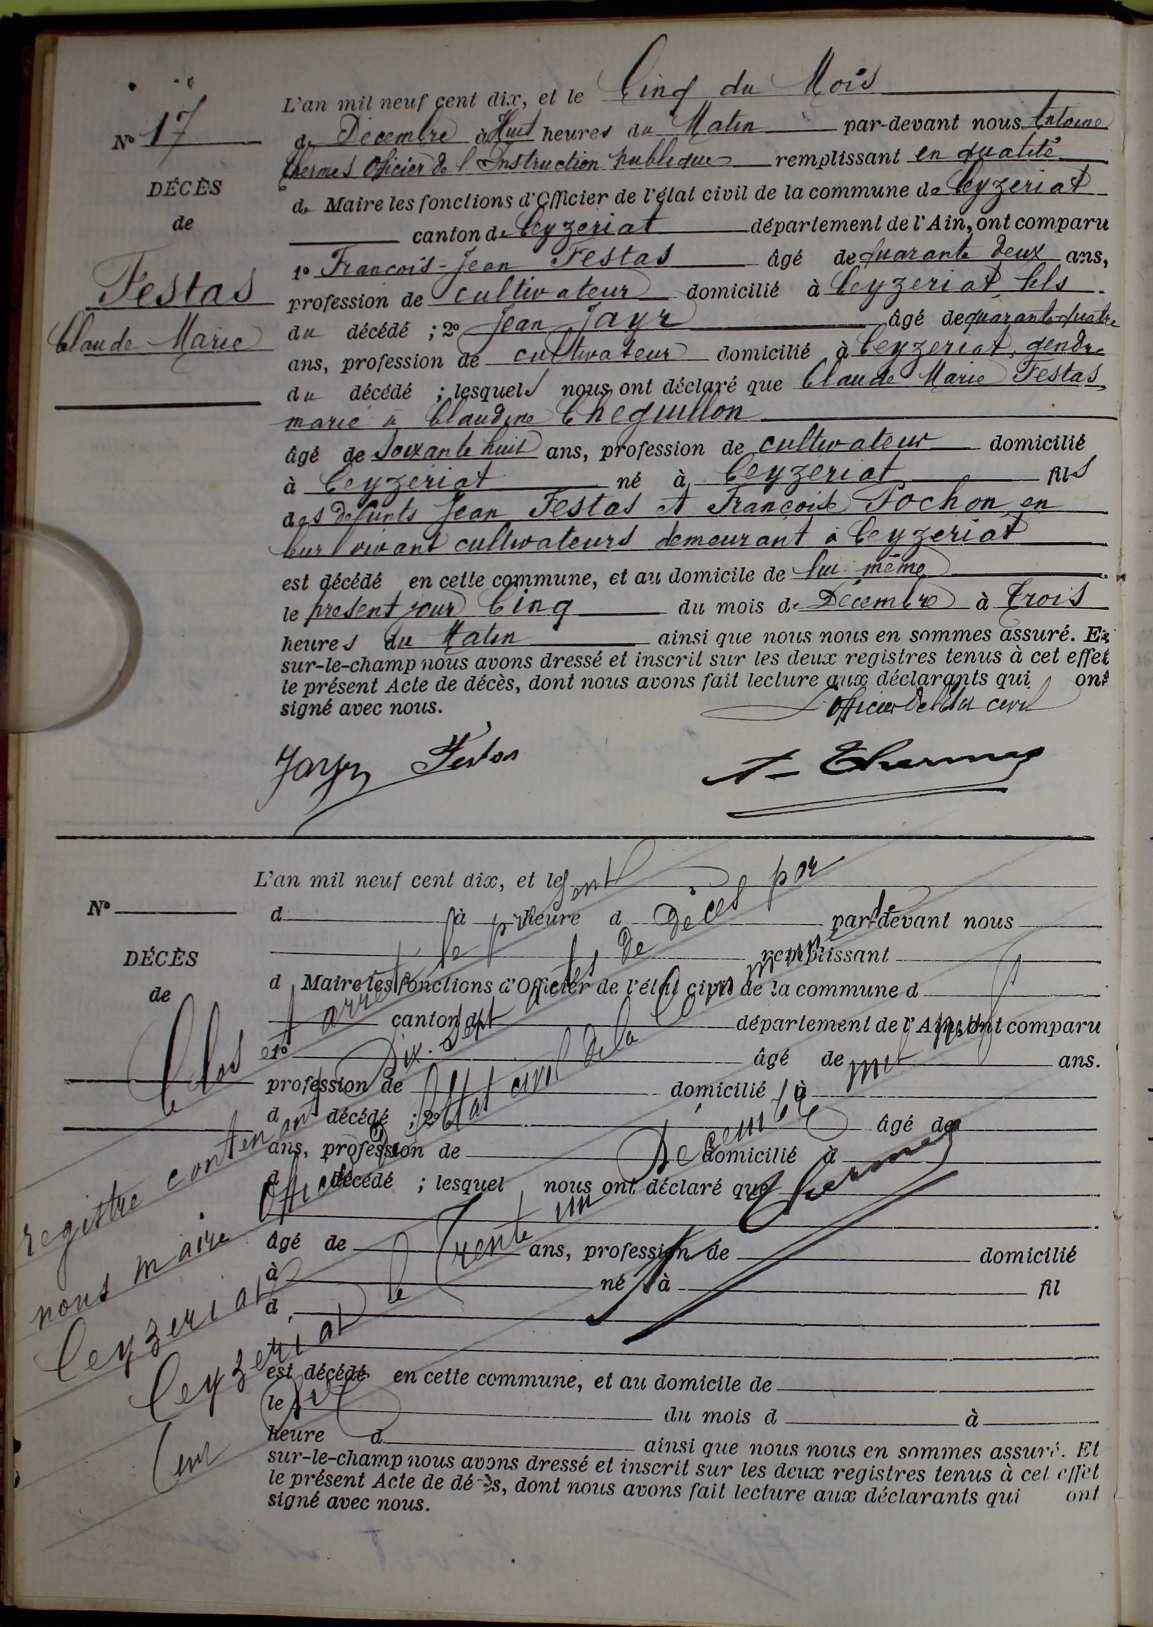 L'an mil neuf cent dix, et le Cinq du Mois
N° 17
de Décembre à Huit heures du Matin par-devant nous Antoine
Thermes Officier de l'Instruction publique remplissant en qualité
DÉCÈS
de Maire les fonctions d'Officier de l'état civil de la commune de Ceyzeriat
de
canton de Ceyzeriat département de l'Ain, ont comparu
1° François-Jean Festas âgé de quarante deux ans,
Festas
profession de cultivateur domicilié à Ceyzeriat, fils
Claude Marie
du décédé ; 2° Jean Jayr âgé de quarante-quatre
ans, profession de cultivateur domicilié à Ceyzeriat, gendre
du décédé ; lesquels nous ont déclaré que Claude Marie Festas
marié à Claudine Cheguillon
âgé de soixante huit ans, profession de cultivateur domicilié
à Ceyzeriat né à Ceyzeriat fils
des défunts Jean Festas et Françoise Pochon en
leur vivant cultivateurs demeurant à Ceyzeriat
est décédé en cette commune, et au domicile de lui-même
le présent jour Cinq du mois de Décembre à Trois
heures du Matin ainsi que nous nous en sommes assuré. Et
sur-le-champ nous avons dressé et inscrit sur les deux registres tenus à cet effet
le présent Acte de décès, dont nous avons fait lecture aux déclarants qui ont
signé avec nous.
L'officier de l'état civil
Jayr Festas A. Thermes
L'an mil neuf cent dix, et le
N°
d à heure d par-devant nous
remplissant
DÉCÈS
d Maire les fonctions d'Officier de l'état civil de la commune d
de
canton d département de l'Ain, ont comparu
1° âgé de ans.
profession de domicilié à
d décédé ; 2° âgé de
ans, profession de domicilié à
d décédé ; lesquel nous ont déclaré que
âgé de ans, profession de domicilié
à né à fil
d
est décédé en cette commune, et au domicile de
le du mois d à
heure d ainsi que nous nous en sommes assuré. Et
sur-le-champ nous avons dressé et inscrit sur les deux registres tenus à cet effet
le présent Acte de décès, dont nous avons fait lecture aux déclarants qui ont
signé avec nous.
Clos et arrêté le présent
registre contenant Dix-Sept actes de Décès par
nous maire Officier de l'Etat civil de la Commune de
Ceyzeriat
Ceyzeriat le Trente un Décembre mil neuf
Cent Dix
A Thermes